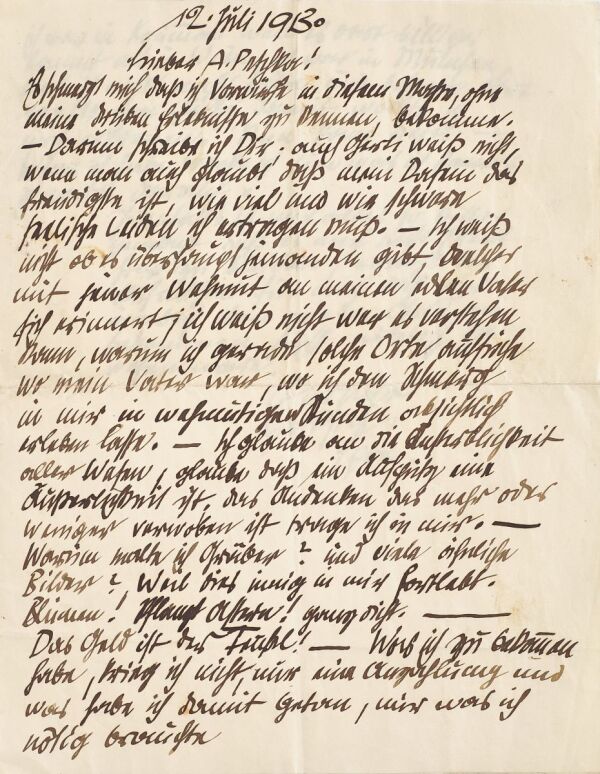 12. Juli
Lieber A. Peschka!
Es schmerzt mich daß ich Vorwürfe in diesem Masse, ohne
meine trüben Erlebnisse zu kennen, bekomme.
– Darum schreibe ich Dir; auch Gerti weiß nicht,
wenn man auch glaubt, daß mein Dasein das
freudigste ist, wie viel und wie schwere
seelische Leiden ich ertragen muß. – Ich weiß
nicht ob es überhaupt jemanden gibt, welcher
mit jener Wehmut an meinen edlen Vater
sich erinnert; ich weiß nicht wer es verstehen
kann, warum ich gerade solche Orte aufsuche
wo mein Vater war, wo ich den Schmerz
in mir in wehmutigen Stunden absichtlich
erleben lasse. – Ich glaube an die Unsterblichkeit
aller Wesen, glaube daß ein Aufputz eine
Äußerlichkeit ist, das Andenken das mehr oder
weniger verwoben ist trage ich in mir. –
Warum malte ich Gräber? und viele ähnliche
Bilder?, Weil dies innig in mir fortlebt.
Blumen! Pflanzt Astern! ganz dicht. —
Das Geld ist der Teufel! — Was ich zu bekommen
habe, krieg ich nicht, nur eine Anzahlung und
was habe ich damit getan, nur was ich
nötig brauchte